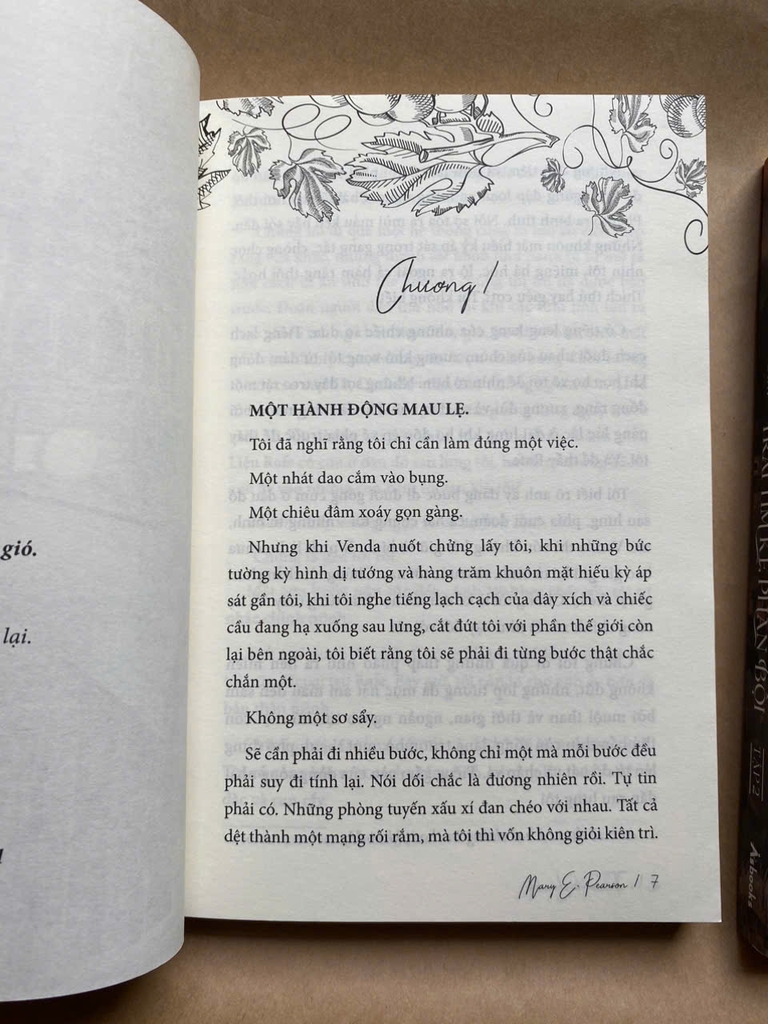 gió.
lại.
Chương 1
MỘT HÀNH ĐỘNG MAU LẸ.
Tôi đã nghĩ rằng tôi chỉ cần làm đúng một việc.
Một nhát dao cắm vào bụng.
Một chiêu đâm xoáy gọn gàng.
Nhưng khi Venda nuốt chửng lấy tôi, khi những bức
tường kỳ hình dị tướng và hàng trăm khuôn mặt hiếu kỳ áp
sát gần tôi, khi tôi nghe tiếng lạch cạch của dây xích và chiếc
cầu đang hạ xuống sau lưng, cắt đứt tôi với phần thế giới còn
lại bên ngoài, tôi biết rằng tôi sẽ phải đi từng bước thật chắc
chắn một.
Không một sơ sẩy.
Sẽ cần phải đi nhiều bước, không chỉ một mà mỗi bước đều
phải suy đi tính lại. Nói dối chắc là đương nhiên rồi. Tự tin
phải có. Những phòng tuyến xấu xí đan chéo với nhau. Tất cả
dệt thành một mạng rối rắm, mà tôi thì vốn không giỏi kiên trì.
Mary E. Pearson / 7
TRÁI TIM KẺ PHẢN BỘI
TẬP 2
Azbooks